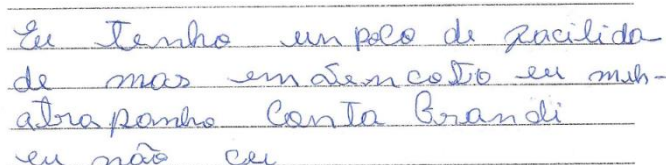 Eu tenho un poco de facilida
de mas em desconto eu muh-
atrapanho Conta Grandi
eu não ceu